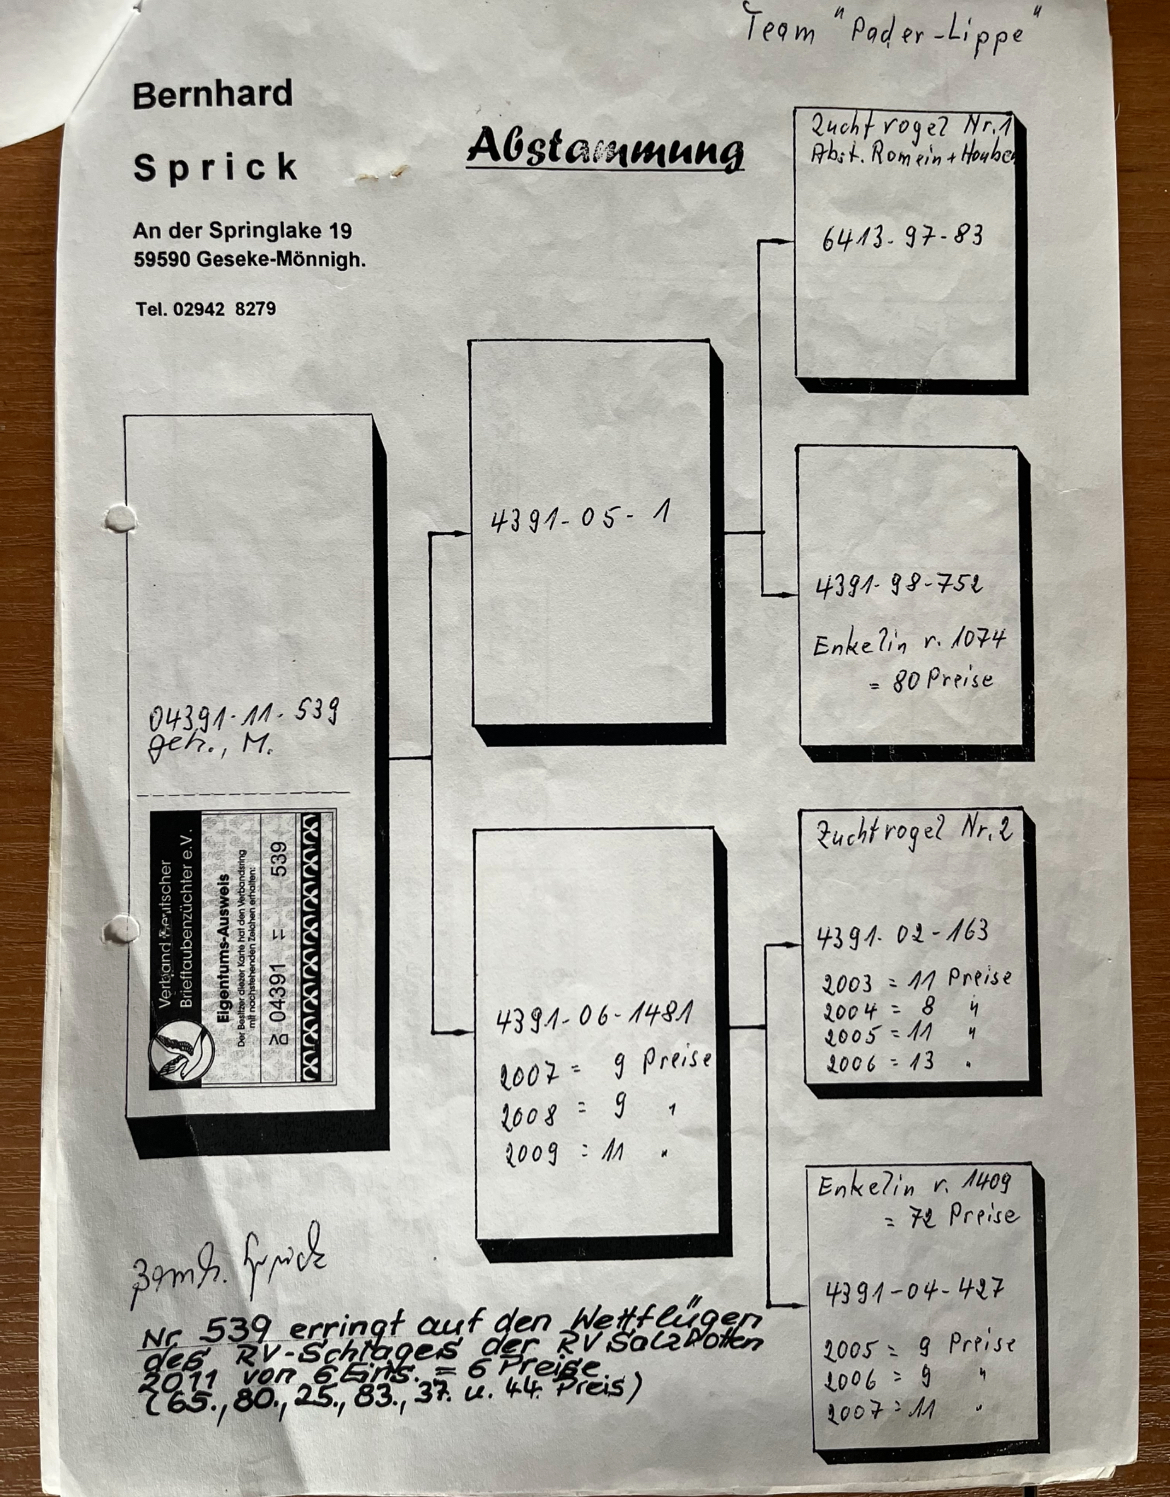 Team "Pader-Lippe"
Bernhard
Sprick
An der Springlake 19
59590 Geseke-Mönnigh.
Tel. 02942 8279
Abstammung
Zuchtvogel Nr.1
Abst. Romein + Houben
6413-97-83
4391-05-1
4391-98-752
Enkelin v. 1074
= 80 Preise
04391-11-539
geh., M.
Verband Deutscher
Brieftaubenzüchter e.V.
Eigentums-Ausweis
Der Besitzer dieser Karte hat den Verbandsring
mit nachstehenden Zeichen erhalten:
04391 11 539
4391-06-1481
2007 = 9 Preise
2008 = 9 "
2009 = 11 "
Zuchtvogel Nr. 2
4391-02-163
2003 = 11 Preise
2004 = 8 "
2005 = 11 "
2006 = 13 "
Enkelin v. 1409
= 72 Preise
4391-04-427
2005 = 9 Preise
2006 = 9 "
2007 = 11 "
Bernh. Sprick
Nr. 539 erringt auf den Wettflügen
des RV-Schlages der RV Salzkotten
2011 von 6 Eins. = 6 Preise
(65., 80., 25., 83., 37. u. 44. Preis)